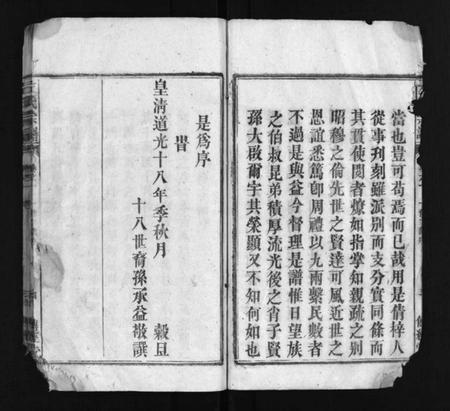 當也豈可苟焉而已哉用是倩梓人
從事刋刻雖派別而支分實同條而
其貫使閱者燎如指掌知親疏之別
昭穆之倫先世之賢達可風近世之
恩誼悉篤卽周禮以九兩繫民數者
不過是與益今督理是譜惟日望族
之伯叔昆弟積厚流光後之肖子賢
孫大啟爾宇其榮顯又不知何如也
是爲序
旹
皇清道光十八年季秋月　榖旦
十八世裔孫承益敬譔